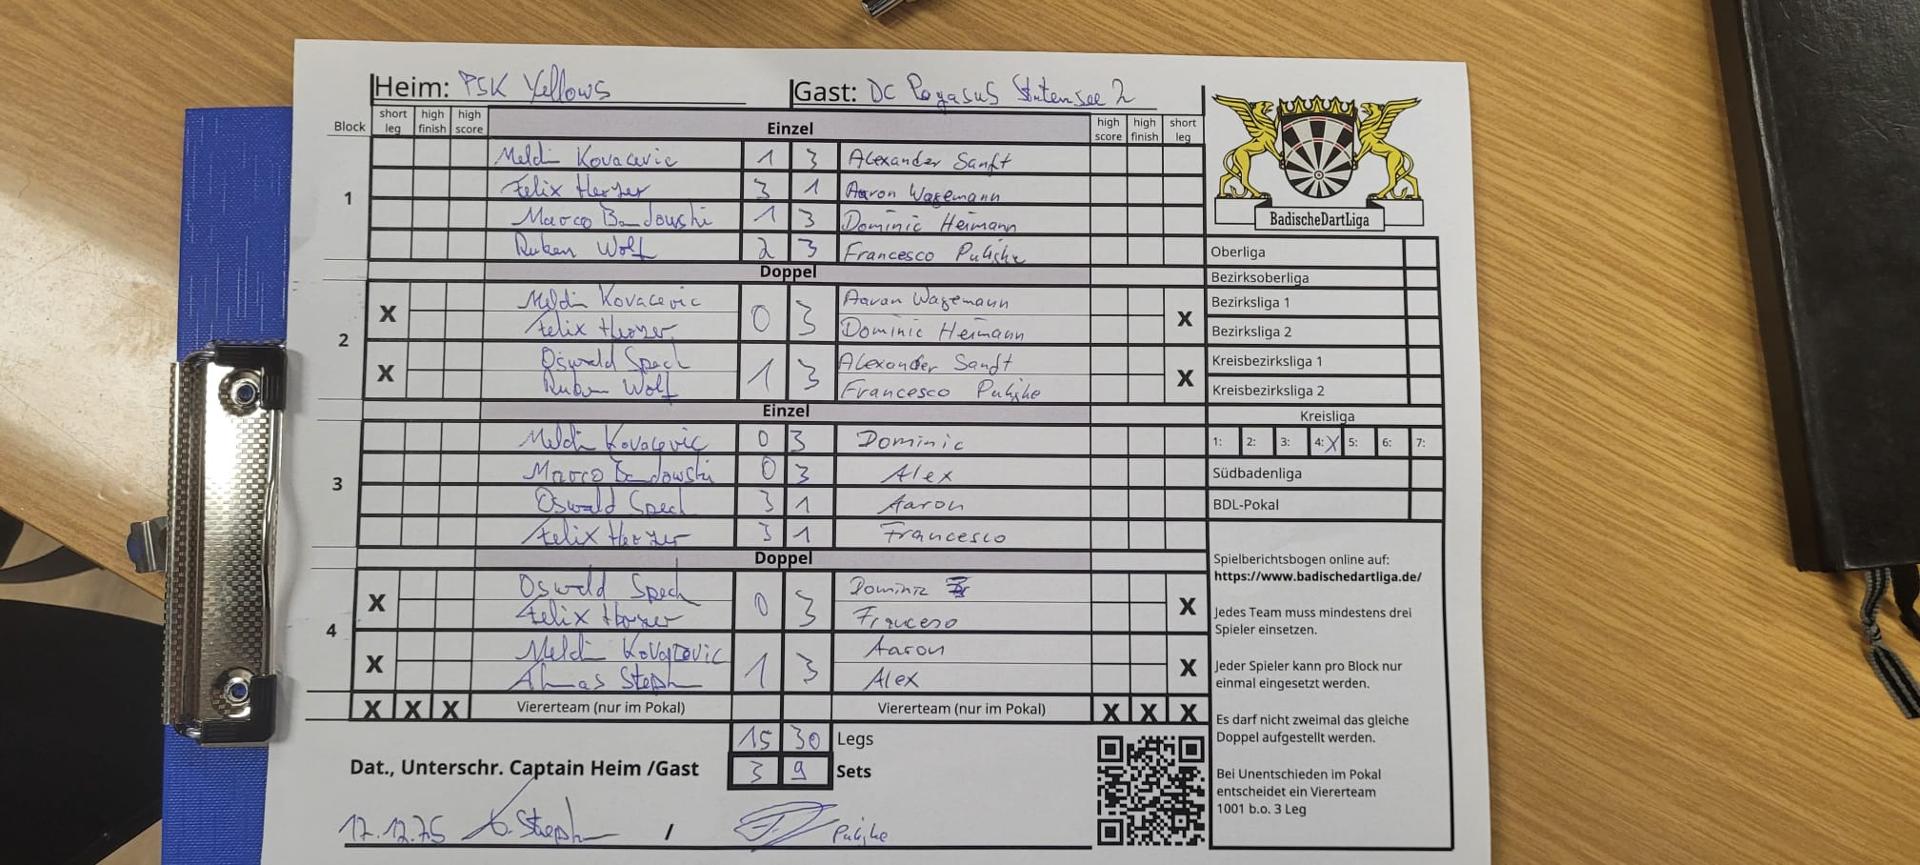 Heim: PSK Yellows Gast: DC Pegasus Stutensee 2
Block short leg high finish high score Einzel high score high finish short leg
1
Meldin Kovacevic 1 3 Alexander Sanft
Felix Herzer 3 1 Aaron Wagemann
Marco Bandowski 1 3 Dominic Heimann
Ruben Wolf 2 3 Francesco
Doppel
2
X Meldin Kovacevic 0 3 Aaron Wagemann X
Felix Herzer Dominic Heimann
X Oswald Spech 1 3 Alexander Sanft X
Ruben Wolf Francesco
Einzel
3
Meldin Kovacevic 0 3 Dominic
Marco Bandowski 0 3 Alex
Oswald Spech 3 1 Aaron
Felix Herzer 3 1 Francesco
Doppel
4
X Oswald Spech 0 3 Dominic X
Felix Herzer Franceso
X Meldin 1 3 Aaron X
Alex
X X X Viererteam (nur im Pokal) Viererteam (nur im Pokal) X X X
15 30 Legs
3 9 Sets
Dat., Unterschr. Captain Heim /Gast
/
BadischeDartLiga
Oberliga
Bezirksoberliga
Bezirksliga 1
Bezirksliga 2
Kreisbezirksliga 1
Kreisbezirksliga 2
Kreisliga
1: 2: 3: 4: X 5: 6: 7:
Südbadenliga
BDL-Pokal
Spielberichtsbogen online auf:
https://www.badischedartliga.de/
Jedes Team muss mindestens drei
Spieler einsetzen.
Jeder Spieler kann pro Block nur
einmal eingesetzt werden.
Es darf nicht zweimal das gleiche
Doppel aufgestellt werden.
Bei Unentschieden im Pokal
entscheidet ein Viererteam
1001 b.o. 3 Leg